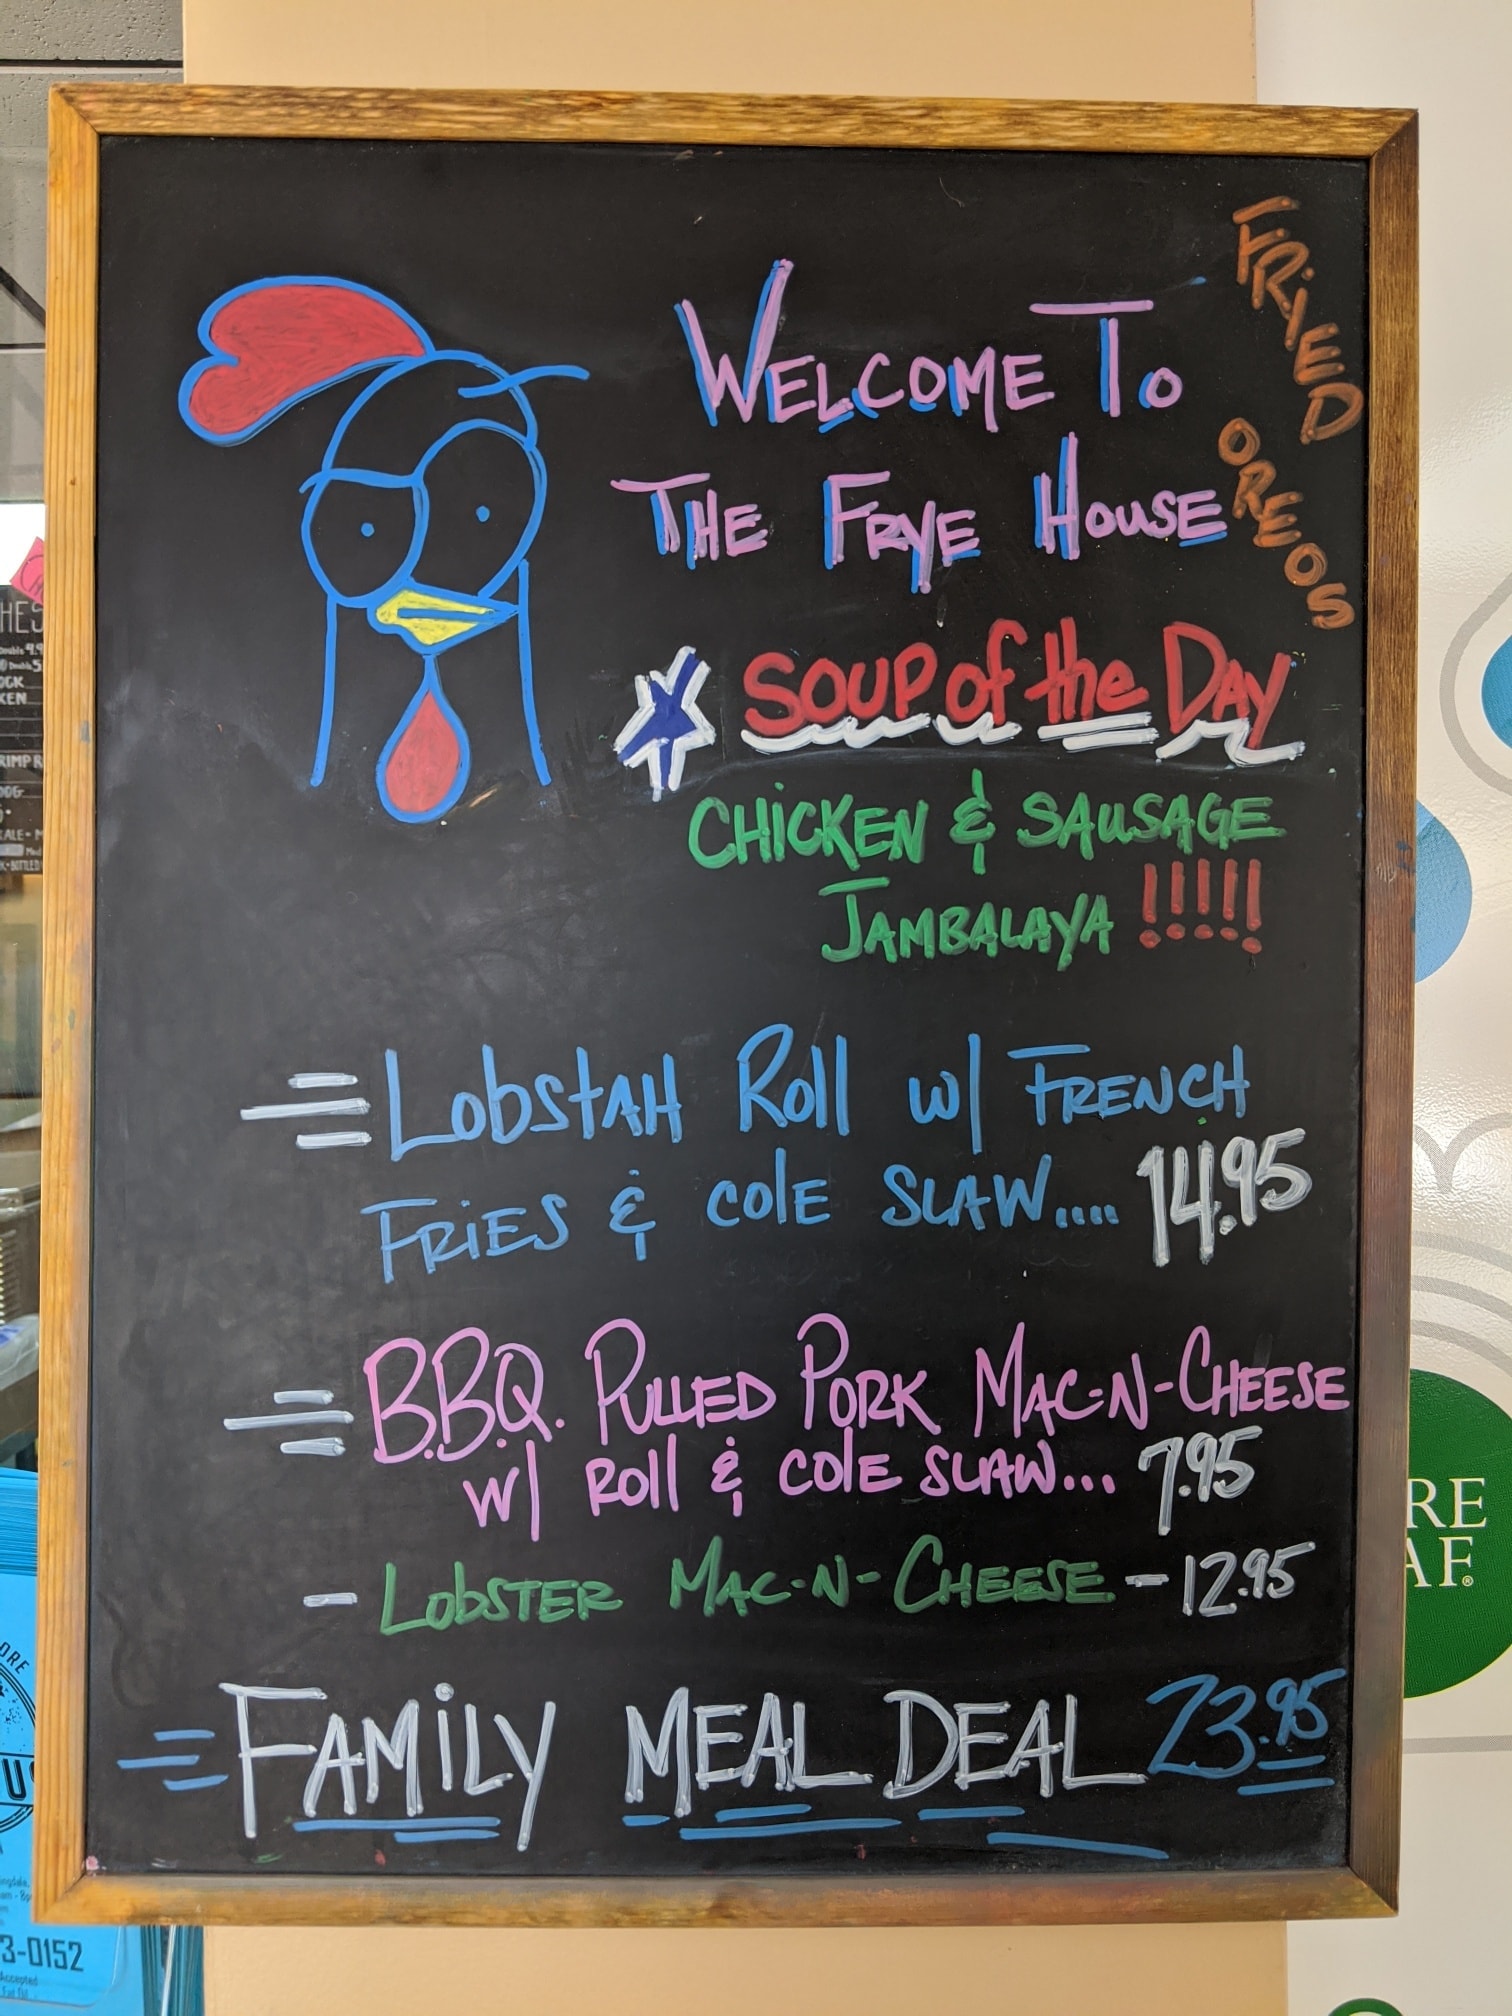 WELCOME TO
THE FRYE HOUSE
FRIED
OREOS
SOUP of the DAY
CHICKEN & SAUSAGE
JAMBALAYA !!!!!
LobstAH Roll w/ FRENCH
FRIES & COlE SLAW.... 14.95
B.B.Q. PULLED PORK MAC-N-CHEESE
W/ ROll & COlE SLAW... 7.95
- LObSTER MAC-N-CHEESE - 12.95
FAMILY MEAL DEAL 23.95
HES
Double 5
KEN
3-0152
Accepted
RE
AF®